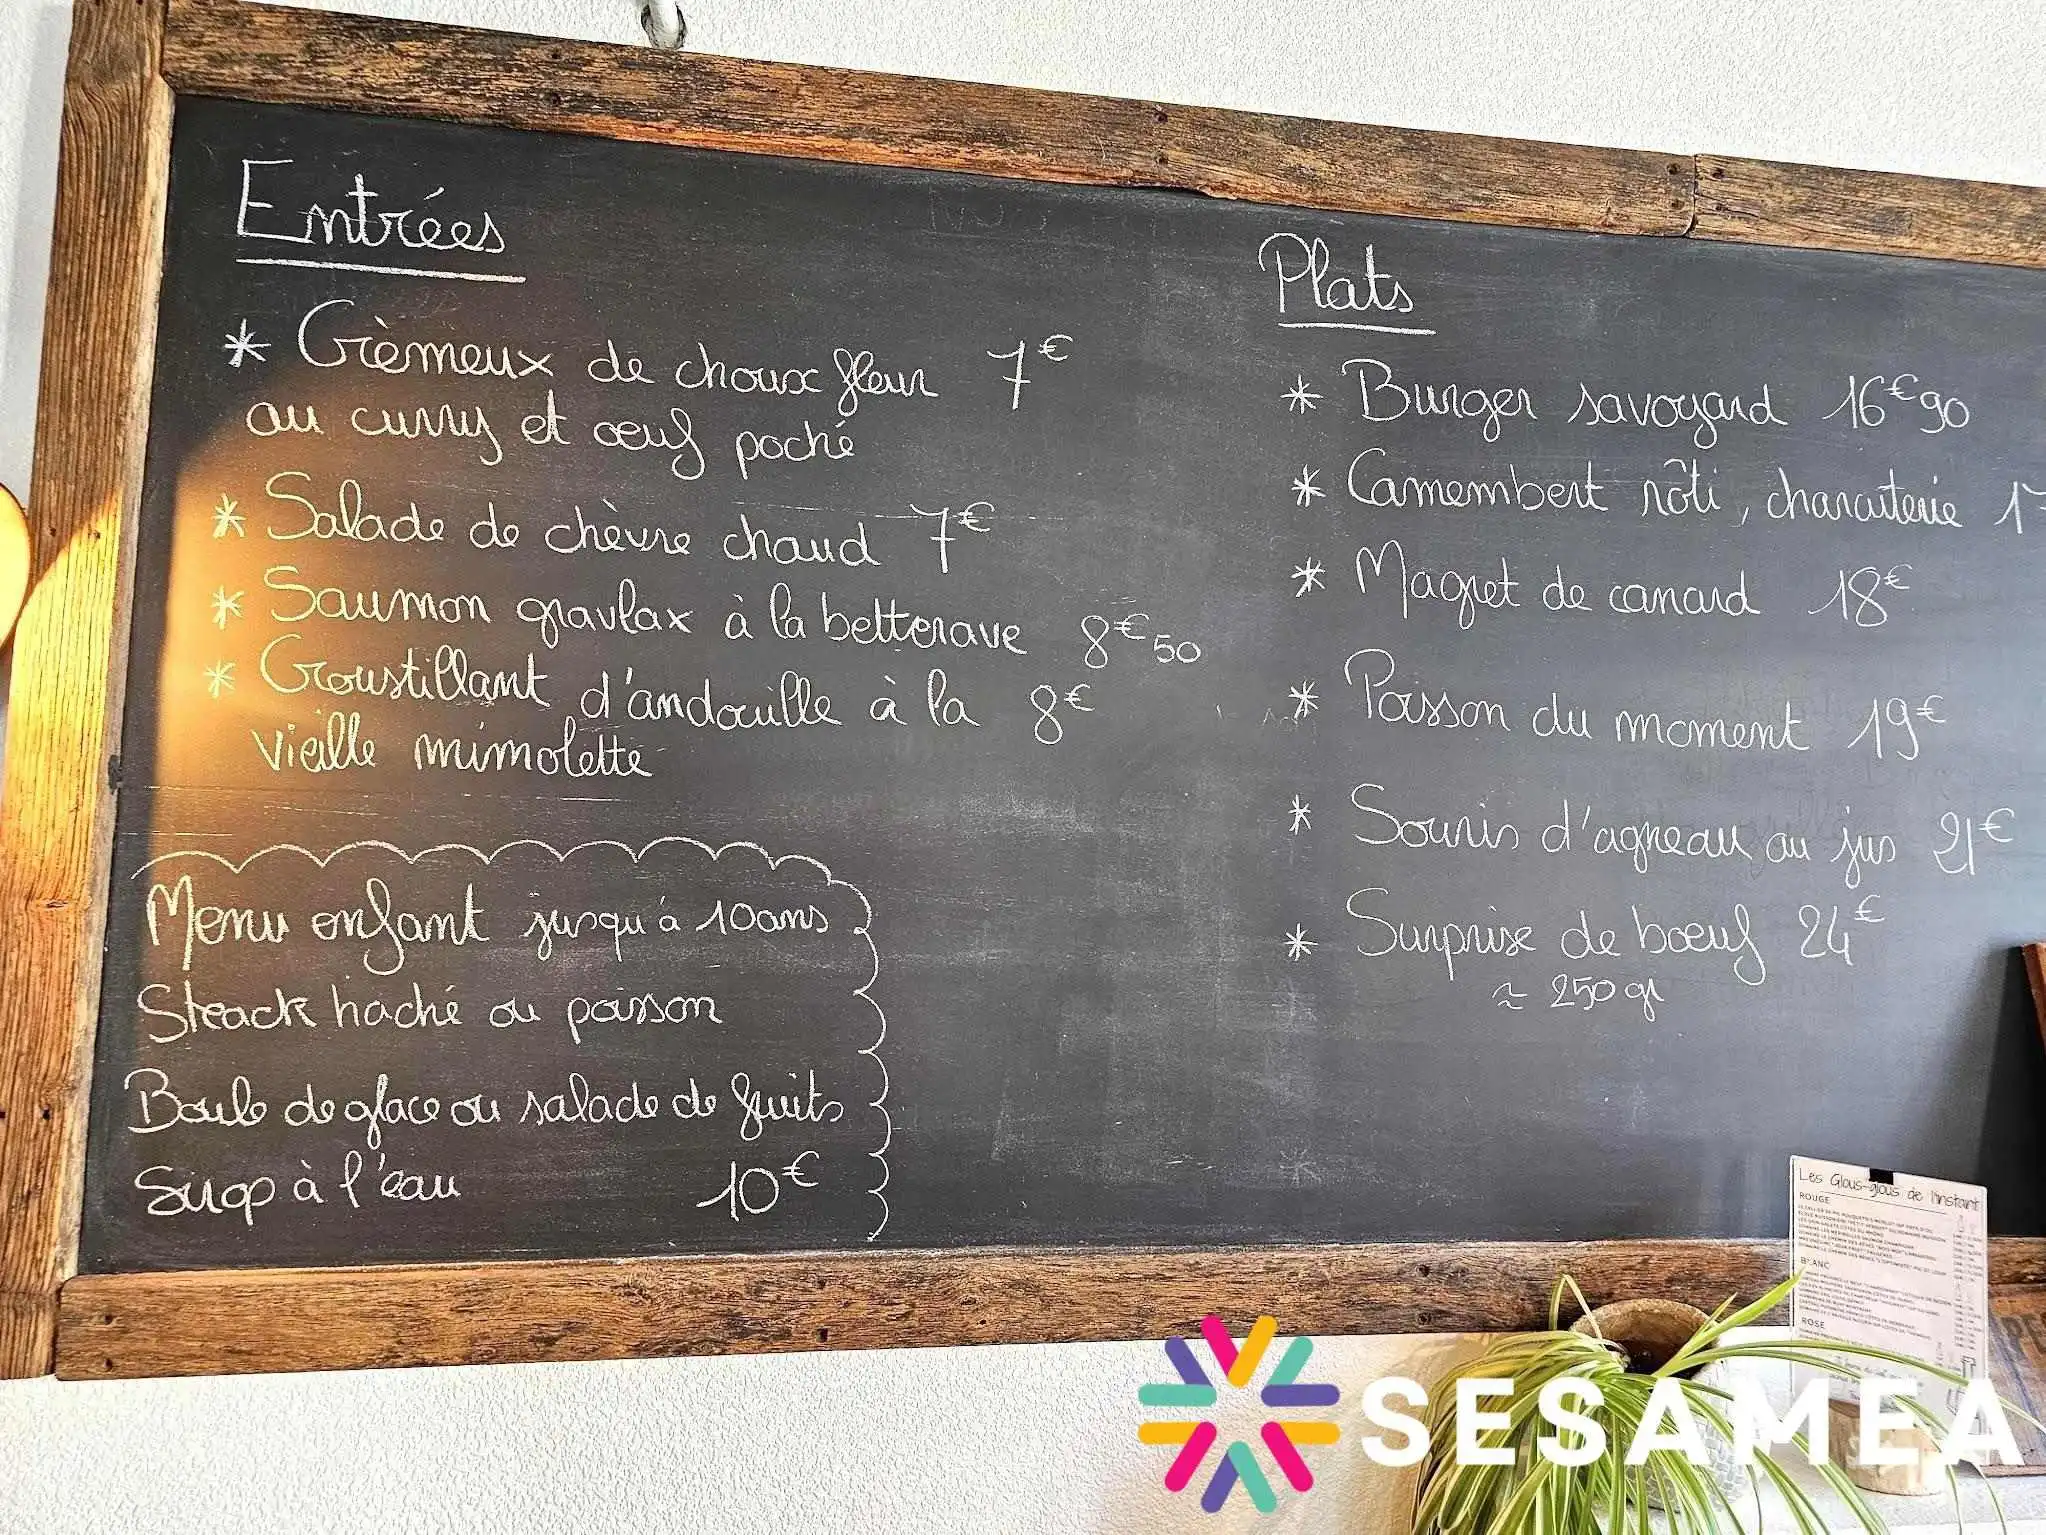 Entrées
* Crèmeux de choux fleur 7€
au curry et œuf poché
* Salade de chèvre chaud 7€
* Saumon gravlax à la betterave 8€50
* Croustillant d'andouille à la 8€
vieille mimolette
Menu enfant jusqu'à 10ans
Steack haché ou poisson
Boule de glace ou salade de fruits
Sirop à l'eau 10€
Plats
* Burger savoyard 16€90
* Camembert rôti, charcuterie 17
* Magret de canard 18€
* Poisson du moment 19€
* Souris d'agneau au jus 21€
* Surprise de bœuf 24€
≈ 250gr
Les Glous-glous de l'instant
ROUGE
BLANC
ROSE
SESAMEA